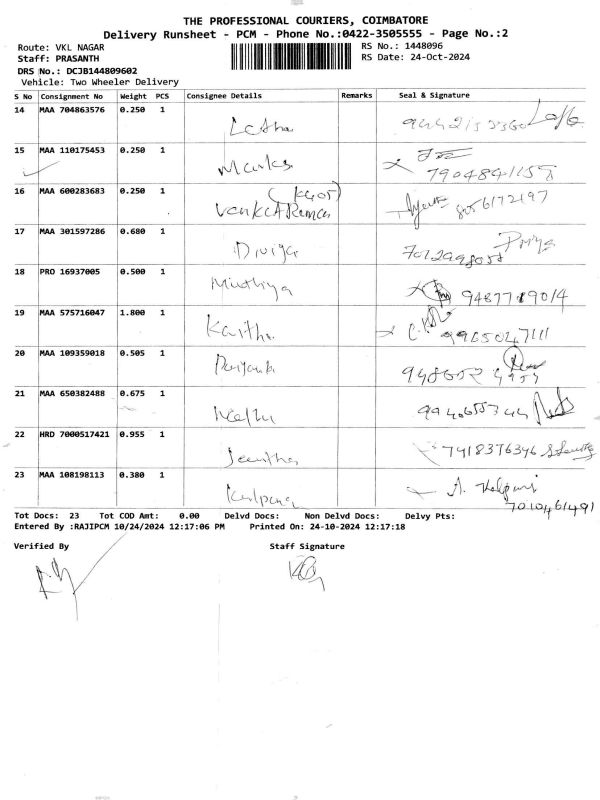 THE PROFESSIONAL COURIERS, COIMBATORE
Delivery Runsheet - PCM - Phone No.:0422-3505555 - Page No.:2
Route: VKL NAGAR RS No.: 1448096
Staff: PRASANTH RS Date: 24-Oct-2024
DRS No.: DCJB144809602
Vehicle: Two Wheeler Delivery
S No Consignment No Weight PCS Consignee Details Remarks Seal & Signature
14 MAA 704863576 0.250 1 Latha
15 MAA 110175453 0.250 1 7904841155
16 MAA 600283683 0.250 1 VenkatRaman 8056172197
17 MAA 301597286 0.680 1 Diviya Priya
18 PRO 16937005 0.500 1 Muthiya 9487719014
19 MAA 575716047 1.800 1 Kavitha 9965047111
20 MAA 109359018 0.505 1 Priyanka
21 MAA 650382488 0.675 1 Neethu
22 HRD 7000517421 0.955 1 Jeevitha 7418376346
23 MAA 108198113 0.380 1 Kalpana A. 7010461491
Tot Docs: 23 Tot COD Amt: 0.00 Delvd Docs: Non Delvd Docs: Delvy Pts:
Entered By :RAJIPCM 10/24/2024 12:17:06 PM Printed On: 24-10-2024 12:17:18
Verified By Staff Signature